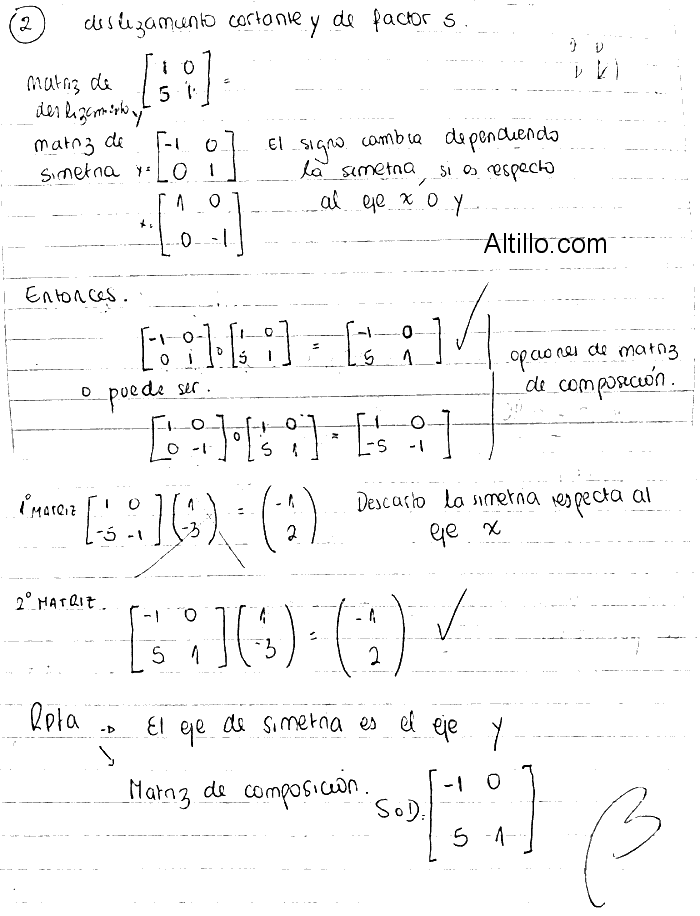 2 deslizamiento cortante y de factor 5.
matriz de deslizamiento y [1 0; 5 1] =
matriz de simetria y= [-1 0; 0 1] El signo cambia dependiendo
la simetria, si es respecto
x. [1 0; 0 -1] al eje x o y
Altillo.com
Entonces.
[-1 0; 0 1] o [1 0; 5 1] = [-1 0; 5 1] ✓ opciones de matriz
o puede ser. de composición.
[1 0; 0 -1] o [1 0; 5 1] = [1 0; -5 -1]
1° MATRIZ [1 0; -5 -1] (1; -3) = (-1; 2) Descarto la simetria respecta al
eje x
2° MATRIZ. [-1 0; 5 1] (1; -3) = (-1; 2) ✓
Rpta → El eje de simetria es el eje y
Matriz de composición. SoD: [-1 0; 5 1]